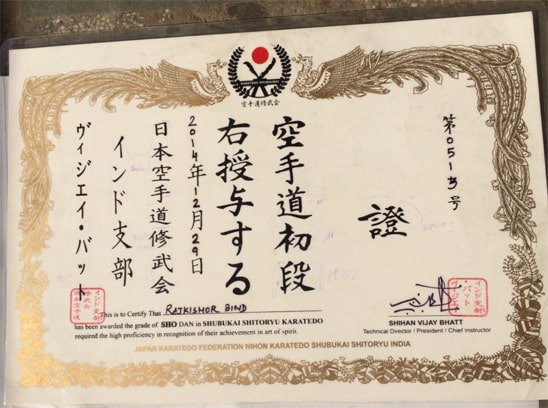 空手道修武会
第0513号
證
空手道初段
右授与する
2014年12月29日
日本空手道修武会
インド支部
ヴィジエイ・バット
This is to Certify That RATKISHOR BIND
has been awarded the grade of SHO DAN in SHUBUKAI SHITORYU KARATEDO
required the high proficiency in recognition of their achievement in art of spirit.
SHIHAN VIJAY BHATT
Technical Director / President / Chief Instructor
JAPAN KARATEDO FEDERATION NIHON KARATEDO SHUBUKAI SHITORYU INDIA